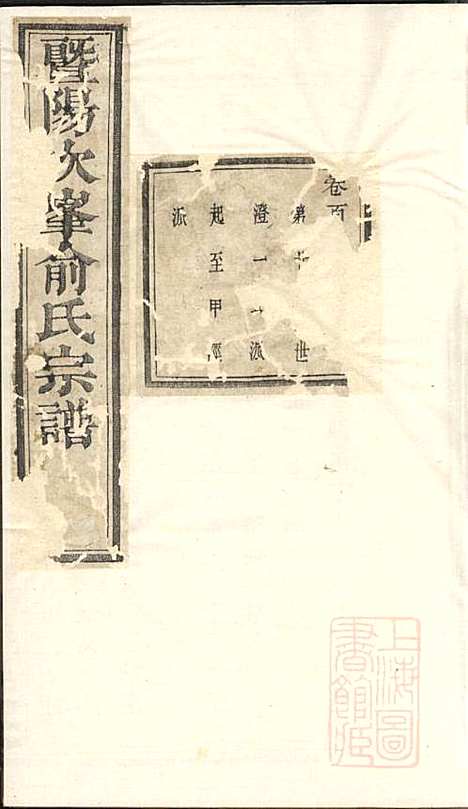 暨陽次峯俞氏宗譜
卷百
第 世
澄一 派
起至甲
派
上海圖書館藏